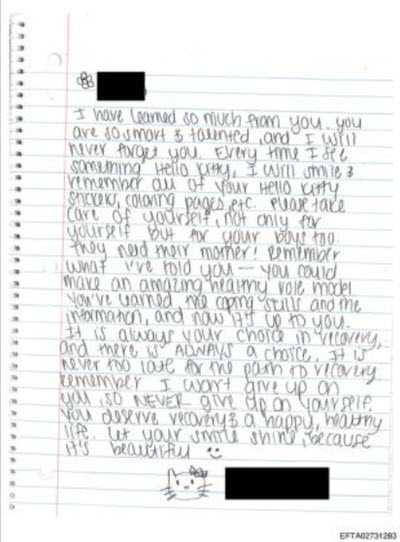 I have learned so much from you. you
are so smart & talented, and I will
never forget you. Every time I see
something Hello Kitty, I will smile &
remember all of your Hello Kitty
stickers, coloring pages, etc. Please take
care of yourself, not only for
yourself but for your boys too.
They need their mother! Remember
what I've told you — you could
make an amazing healthy role model.
You've learned the coping skills and the
information, and now it's up to you.
It is always your choice in recovery,
and there is ALWAYS a choice. It is
never too late for the path to recovery.
Remember I won't give up on
you, so NEVER give up on yourself.
You deserve recovery & a happy, healthy
life. Let your smile shine, because
it's beautiful
EFTA02731283